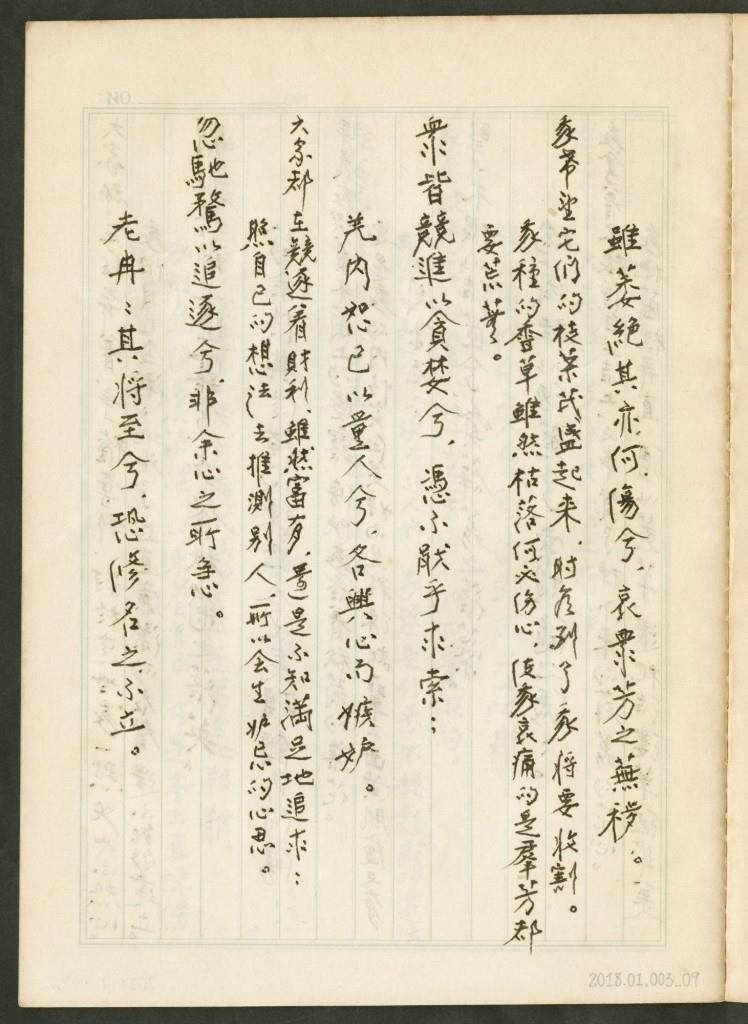 雖萎絕其亦何傷兮、哀衆芳之蕪穢。
我希望它們的枝葉茂盛起來、時候到了我將要收割。
我種的香草雖然枯落何必傷心、使我哀痛的是羣芳都
要荒蕪。
衆皆競進以貪婪兮、憑不猒乎求索；
羌內恕己以量人兮、各興心而嫉妒。
大家都在競逐着財利、雖然富有、還是不知滿足地追求；
照自己的想法去推測別人、所以会生妒忌的心思。
忽馳騖以追逐兮、非余心之所急。
老冉〻其将至兮、恐修名之不立。
NO
2018.01.003_09